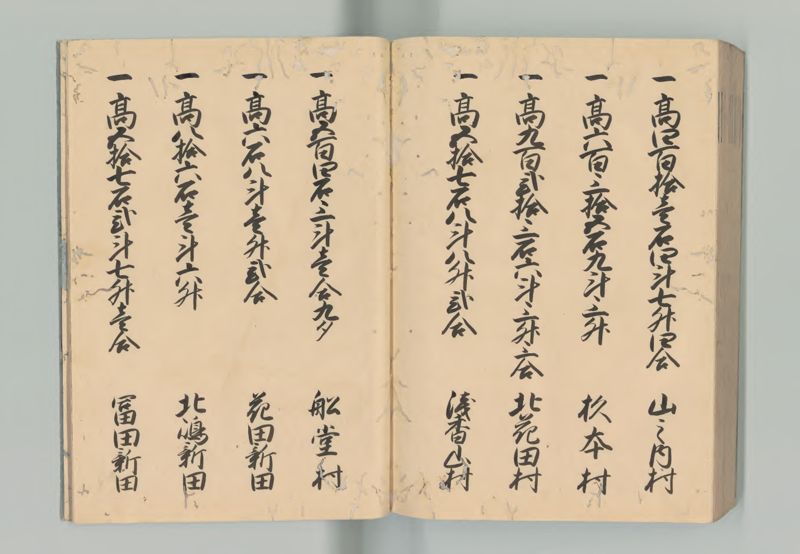 一髙四百拾壱石四斗七升四合 山之内村
一髙六百三拾五石九斗三升 杉本村
一髙九百弐拾三石六斗三升三合 北花田村
一髙五拾七石八斗八升弐合 浅香山村
一髙五百四石三斗壱合九夕 舩堂村
一髙六石八斗壱升弐合 花田新田
一髙八拾六石壱斗六升 北嶋新田
一髙五拾七石弐斗七升壱合 冨田新田